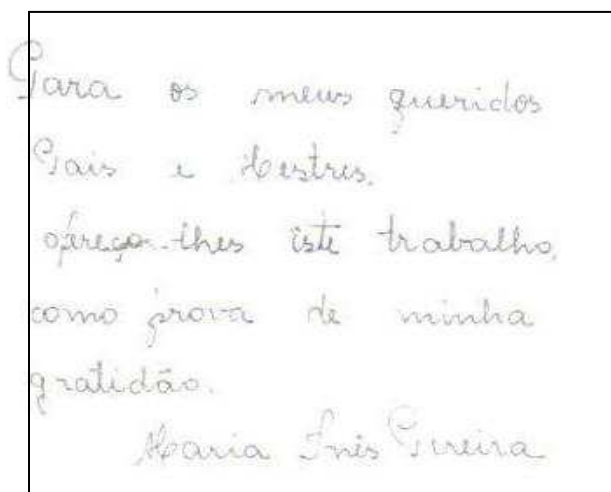 Para os meus queridos
Pais e Mestres,
ofereço-lhes êste trabalho,
como prova de minha
gratidão.
Maria Inês Pereira